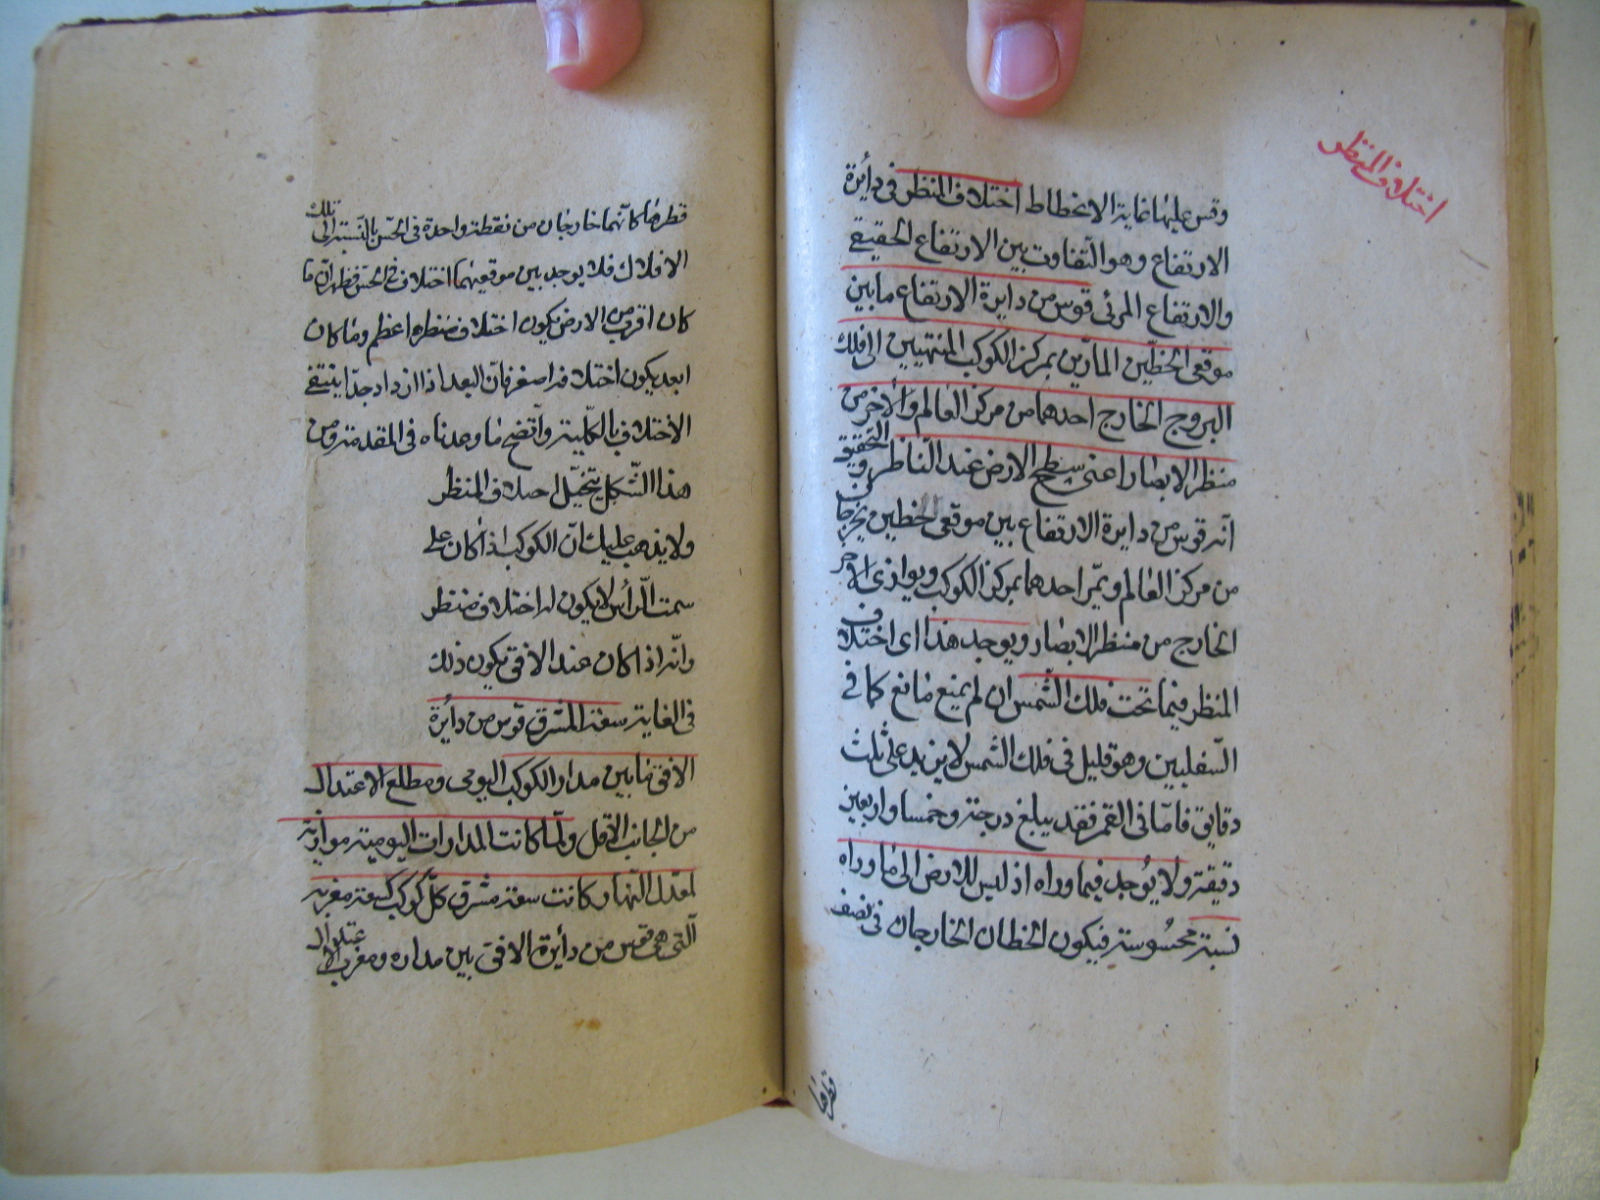 اختلاف المنظر
وقس عليها غاية الانحطاط اختلاف المنظر في دائرة
الارتفاع وهو التفاوت بين الارتفاع الحقيقي
والارتفاع المرئي قوس من دايرة الارتفاع ما بين
موقعي الخطين المارّين بمركز الكوكب المنتهيين الى فلك
البروج الخارج احدهما من مركز العالم والآخر من
منظر الابصار اعني سطح الارض عند الناظر والتحقيق
انه قوس من دايرة الارتفاع بين موقعي خطين يخرجان
من مركز العالم ويمرّ احدهما بمركز الكوكب ويوازي الآخر
الخارج من منظر الابصار ويوجد هذا اى اختلاف
المنظر فيما تحت فلك الشمس ان لم يمنع مانع كما في
السفليين وهو قليل في فلك الشمس لا يزيد على ثلث
دقايق فامّا في القمر فقد يبلغ درجة وخمسا واربعين
دقيقة ولا يوجد فيما وراه اذ ليس للارض الى ما وراه
نسبة محسوسة فيكون الخطان الخارجان في نصف
قطرها
قطرها كانهما خارجان من نقطة واحدة في الحسّ بالنسبة الى تلك
الافلاك فلا يوجد بين موقعيهما اختلاف في الحس فظهر انّ ما
كان اقرب من الارض يكون اختلاف منظره اعظم وما كان
ابعد يكون اختلافه اصغر فانّ البعد اذا ازداد جدّا ينتفي
الاختلاف بالكلّية واتّضح ما وعدناه في المقدمة ومن
هذا الشّكل يتخيّل اختلاف المنظر
ولا يذهب عليك انّ الكوكب اذا كان على
سمت الرأس لا يكون له اختلاف منظر
وانّه اذا كان عند الافق يكون ذلك
في الغاية سعة المشرق قوس من دائرة
الافق ما بين مدار الكوكب اليومي ومطلع الاعتدال
من الجانب الاقل ولمّا كانت المدارات اليومية موازية
لمعدّل النهار كانت سعة مشرق كلّ كوكب كسعة مغربه
الّتي هي قوس من دائرة الافق بين مداره ومغرب الاعتدال